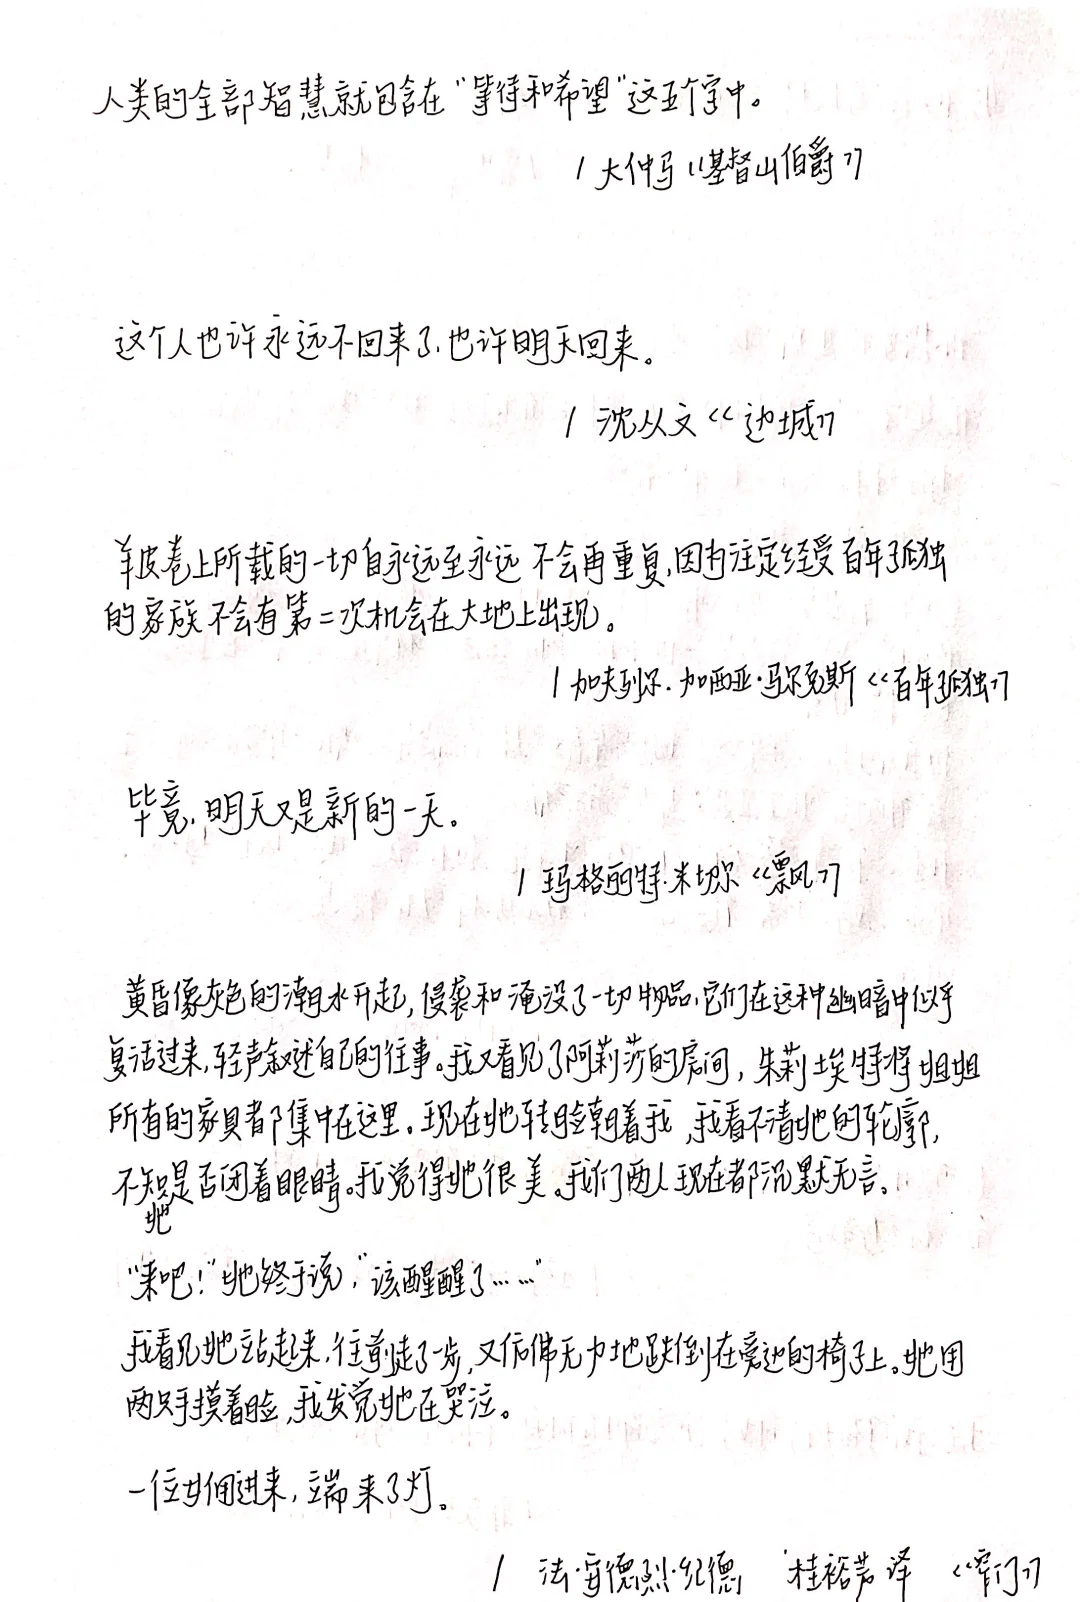 人类的全部智慧就包含在“等待和希望”这五个字中。
/ 大仲马《基督山伯爵》
这个人也许永远不回来了,也许明天回来。
/ 沈从文《边城》
羊皮卷上所载的一切自永远至永远不会再重复,因为注定经受百年孤独
的家族不会有第二次机会在大地上出现。
/ 加夫列尔·加西亚·马尔克斯《百年孤独》
毕竟,明天又是新的一天。
/ 玛格丽特·米切尔《飘风》
黄昏像灰色的潮水升起,侵袭和淹没了一切物品,它们在这种幽暗中似乎
复活过来,轻声叙述自己的往事。我又看见了阿莉莎的房间,朱莉埃特将姐姐
所有的家具都集中在这里。现在她转脸朝着我,我看不清她的轮廓,
不知是否闭着眼睛。我觉得她很美。我们两人现在都沉默无言。
她
“来吧!”她终于说,“该醒醒了……”
我看见她站起来,往前走了一步,又仿佛无力地跌倒在旁边的椅子上。她用
两只手摸着脸,我发觉她在哭泣。
一位女佣进来,端来了灯。
/ 法·安德烈·纪德 桂裕芳 译 《窄门》